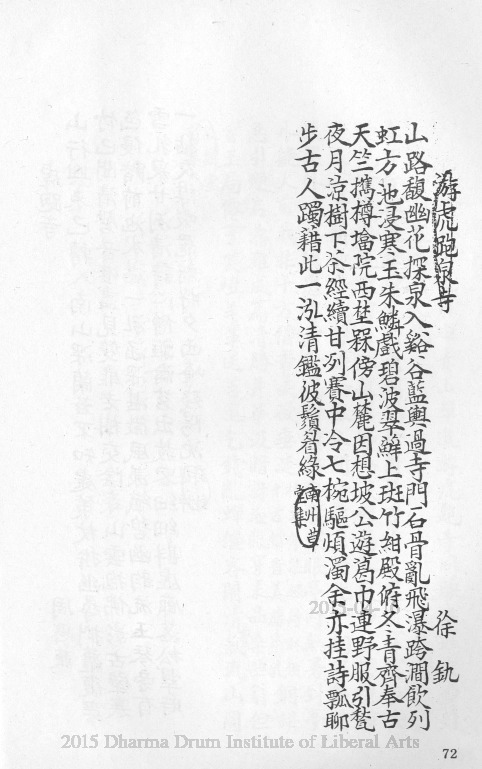 游虎跑泉寺
徐釚
山路馥幽花探泉入谿谷藍輿過寺門石骨亂飛瀑跨澗飲列
虹方池浸寒玉朱鱗戲碧波翠蘚上斑竹紺殿俯冬青齊奉古
天竺攜樽墖院西埜槑傍山麓因想坡公遊葛巾連野服引甃
夜月涼樹下茶經續甘冽賽中冷七椀驅煩濁余亦挂詩瓢聊
步古人躅藉此一泓清鑑彼鬚眉綠
南州草
堂集
2015 Dharma Drum Institute of Liberal Arts
72